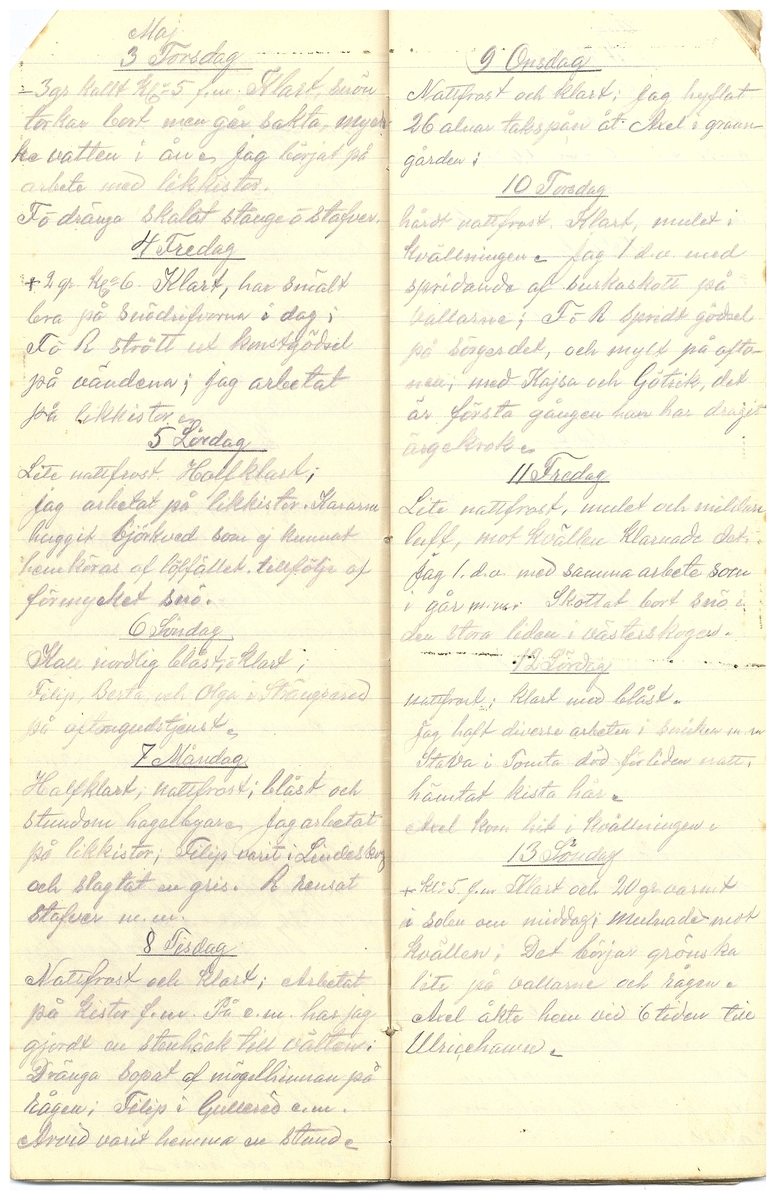 Maj
3 Torsdag
- 3 gr kallt kl=5 f.m. Klart, snön
torkar bort men går sakta, myck-
ke vatten i ån. Jag börjat på
arbeta med likkistor.
F o dränga skalat stänge o stafver.
4 Fredag
+ 2 gr kl=6. Klart, har smält
bra på snödrifvorna i dag;
F o R strött ut konstgödsel
på vändena; jag arbetat
på likkistor.
5 Lördag
Lite nattfrost. Halfklart;
jag arbetat på likkistor. Kararna
huggit björkved som ej kunnat
hemköras af löffället. tillfölje af
förmycket snö.
6 Söndag
Kall nordlig blåst, klart;
Filip, Berta, och Olga i Strängsered
på ottongudstjenst.
7 Måndag
Halfklart; nattfrost; blåst och
stundom hagelbyar. Jag arbetat
på likkistor; Filip varit i Lindeskog
och slagtat en gris. R rensat
stafver m.m.
8 Tisdag
Nattfrost och klart; Arbetat
på kistor f.m. På e.m. har jag
gjordt en stenhäck till välten;
Dränga sopat af mögelhinnan på
rågen; Filip i Gullered e.m.
Arvid varit hemma en stund.
9 Onsdag
Nattfrost och klart; jag hyflat
26 alnar takspån åt Axel i graun-
gården;
10 Torsdag
hårdt nattfrost. Klart, mulet i
kvällningen. Jag 1 d.v. med
spridande af burkaskott på
vallarne; F o R spridt gödsel
på sörgerdet, och mylt på efto-
nen; med Kajsa och Götrik, det
är första gången han har dragit
årgekrok.
11 Fredag
Lite nattfrost, mulet och mildare
luft, mot kvällen klarnade det.
Jag 1. d.v. med samma arbete som
i går m.m. Skottat bort snö i
den stora liden i västerskogen.
12 Lördag
nattfrost; klart med blåst.
Jag haft diverse arbeten i snickeri m m
Stava i Tomta död förliden natt,
hämtat kista här.
Axel kom hit i kvällningen.
13 Söndag
+ kl=5. f.m. Klart och 20 gr. varmt
i solen om middag; mulnade mot
kvällen; Det börjar grönska
lite på vallarne och rågen.
Axel åkte hem vid 6 tiden till
Ulricehamn.